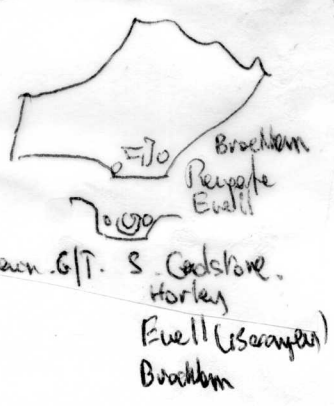 Brockham
Reigate
Ewell
G/T. S. Godstone.
Horley
Ewell
Brockham